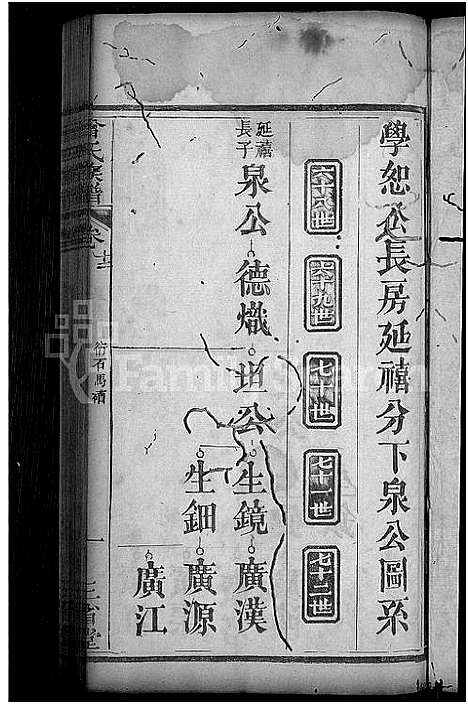 學恕公長房延禧分下泉公圖系
六十八世
六十九世
七十世
七十一世
七十二世
延禧
長子
泉公
德熾
坦公
生鏡
廣漢
生鈿
廣源
廣江
曾氏宗譜
衍石馬
一
三省堂
FamilySearch